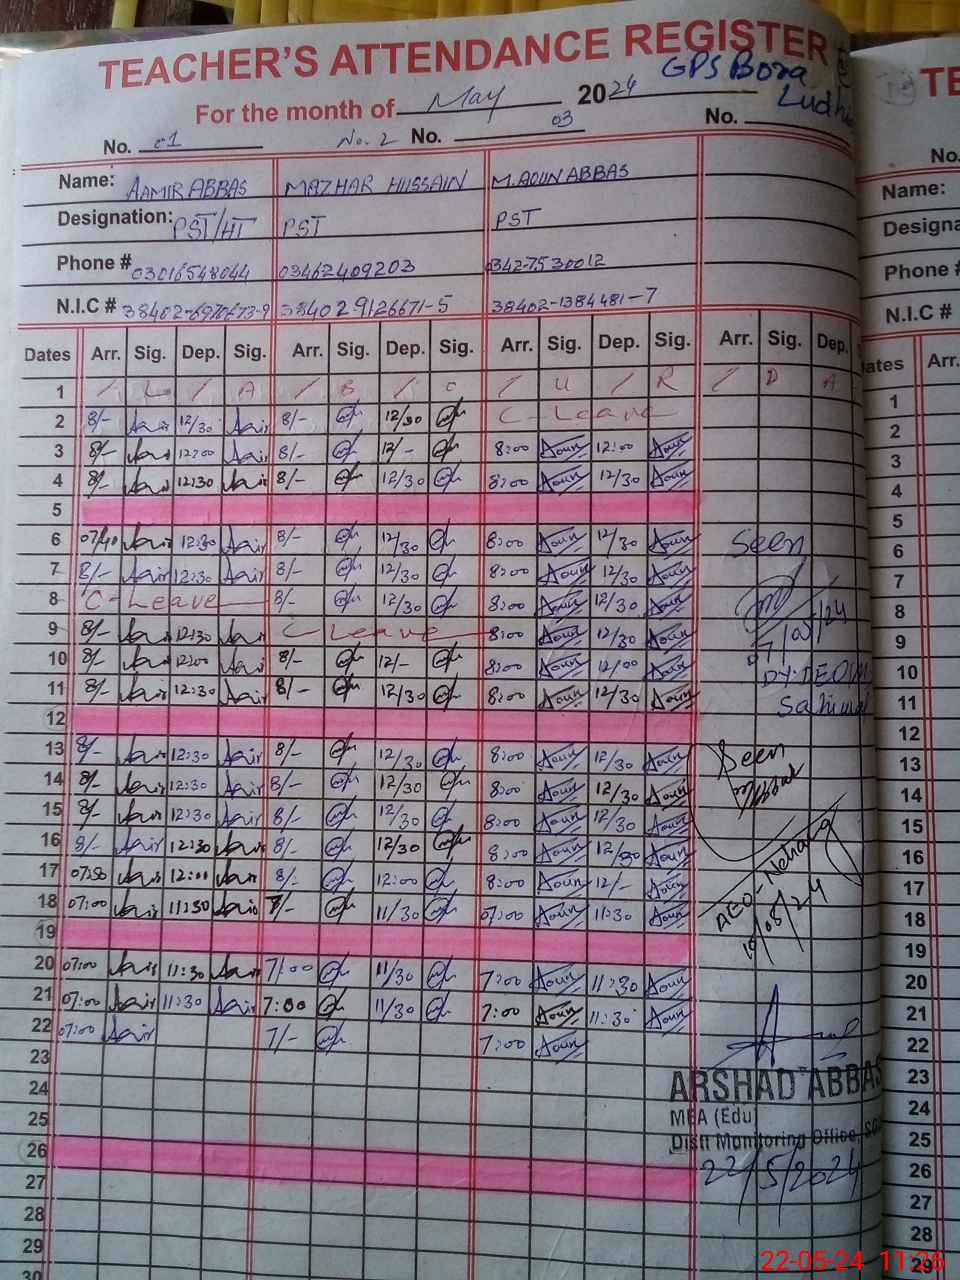 TEACHER'S ATTENDANCE REGISTER
GPS Bora
For the month of May 2024 Ludhi
No. 01 No. 2 No. 03 No.
Name: AAMIR ABBAS MAZHAR HUSSAIN M. AOUN ABBAS
Designation: PST/HT PST PST
Phone # 03016548044 03462409203 03427530012
N.I.C # 38402-6970673-9 38402-9126671-5 38402-1384481-7
Dates Arr. Sig. Dep. Sig. Arr. Sig. Dep. Sig. Arr. Sig. Dep. Sig. Arr. Sig. Dep.
1 / L / A / B / O / U / R / D A
2 8/- Aair 12/30 Aair 8/- 12/30 C-Leave
3 8/- Aair 12:00 Aair 8/- 12/- 8:00 Aoun 12:00 Aoun
4 8/- Aair 12:30 Aair 8/- 12/30 8:00 Aoun 12/30 Aoun
5
6 07/40 Aair 12:30 Aair 8/- 12/30 8:00 Aoun 12/30 Aoun Seen
7 8/- Aair 12:30 Aair 8/- 12/30 8:00 Aoun 12/30 Aoun
8 C-Leave 8/- 12/30 8:00 Aoun 12/30 Aoun
9 8/- Aair 12:30 Aair C-Leave 8:00 Aoun 12/30 Aoun
10 8/- Aair 12:00 Aair 8/- 12/- 8:00 Aoun 12/00 Aoun
11 8/- Aair 12:30 Aair 8/- 12/30 8:00 Aoun 12/30 Aoun
12
13 8/- Aair 12:30 Aair 8/- 12/30 8:00 Aoun 12/30 Aoun Seen
14 8/- Aair 12:30 Aair 8/- 12/30 8:00 Aoun 12/30 Aoun
15 8/- Aair 12:30 Aair 8/- 12/30 8:00 Aoun 12/30 Aoun
16 8/- Aair 12:30 Aair 8/- 12/30 8:00 Aoun 12/30 Aoun
17 07:50 Aair 12:00 Aair 8/- 12:00 8:00 Aoun 12/- Aoun
18 07:00 Aair 11:30 Aair 7/- 11/30 07:00 Aoun 11:30 Aoun
19
20 07:00 Aair 11:30 Aair 7:00 11/30 7:00 Aoun 11:30 Aoun
21 07:00 Aair 11:30 Aair 7:00 11/30 7:00 Aoun 11:30 Aoun
22 07:00 Aair 7/- 7:00 Aoun
23
ARSHAD ABBAS
24
MEA (Edu)
25
Distt Monitoring Office,
26
22/5/2024
27
28
29
30
TE
No.
Name:
Phone #
N.I.C #
Arr.
1
2
3
4
5
6
7
8
9
10
11
12
13
14
15
16
17
18
19
20
21
22
23
24
25
26
27
28
29
22-05-24 11:26